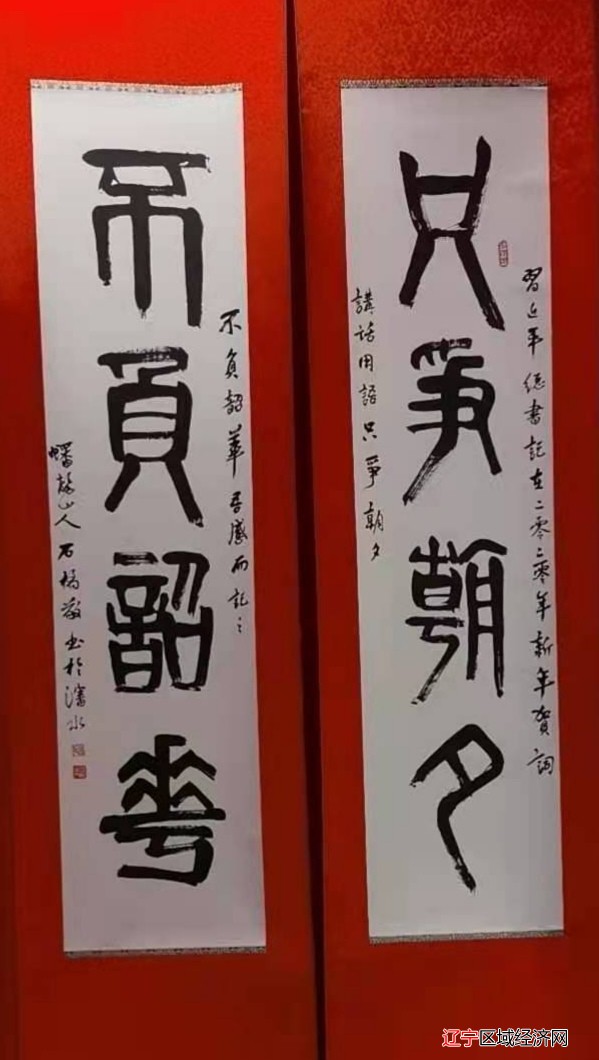 只爭朝夕
習近平總書記在二零二零年新年賀詞
講話用語只爭朝夕
不負韶華
不負韶華有感而記之
蟠龍山人石橋書於瀋水
辽宁区域经济网